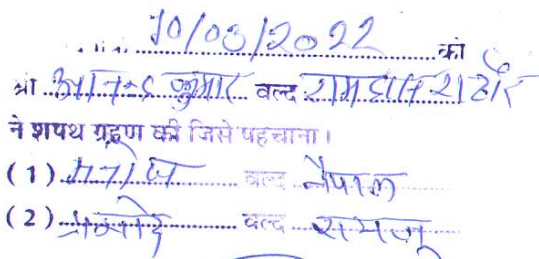 10/03/2022 को
श्री आनन्द कुमार वल्द रामदास राठौर
ने शपथ ग्रहण की जिसे पहचाना।
(1) मनोज वल्द नेपाल
(2) वल्द